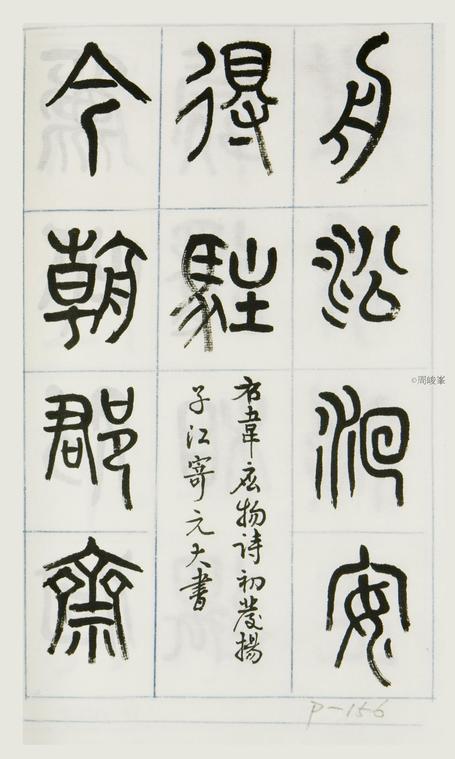 舟沿洄安
得駐
右韋應物詩初發揚
子江寄元大書
今朝郡齋
p-156
©周峻峯